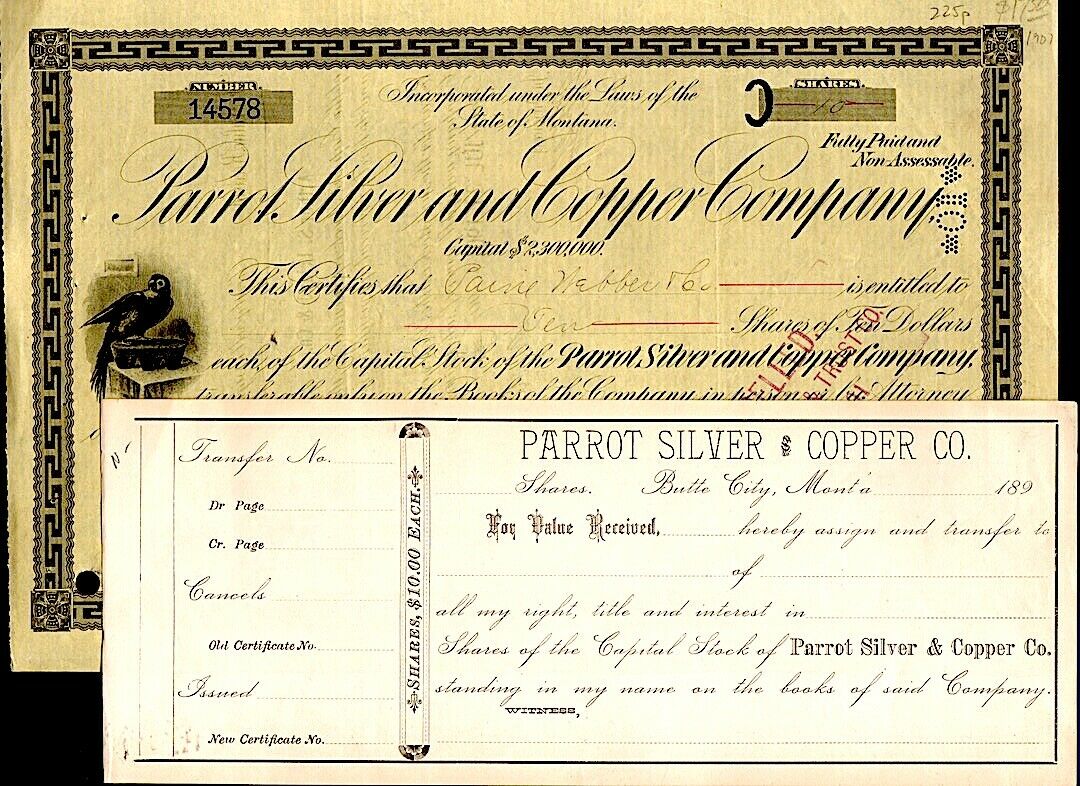 225p
1901
NUMBER
14578
Incorporated under the Laws of the
State of Montana.
SHARES
10
Fully Paid and
Non-Assessable.
Parrot Silver and Copper Company,
Capital $2,300,000.
This Certifies that Paine Webber & Co. is entitled to
Ten Shares of Ten Dollars
each, of the Capital Stock of the Parrot Silver and Copper Company,
transferable only on the Books of the Company in person or by Attorney
& TRUST CO.
Transfer No.
Dr Page
Cr. Page
Cancels
Old Certificate No.
Issued
New Certificate No.
SHARES, $10.00 EACH.
PARROT SILVER & COPPER CO.
Shares. Butte City, Mont'a 189
For Value Received, hereby assign and transfer to
of
all my right, title and interest in
Shares of the Capital Stock of Parrot Silver & Copper Co.
standing in my name on the books of said Company.
WITNESS,